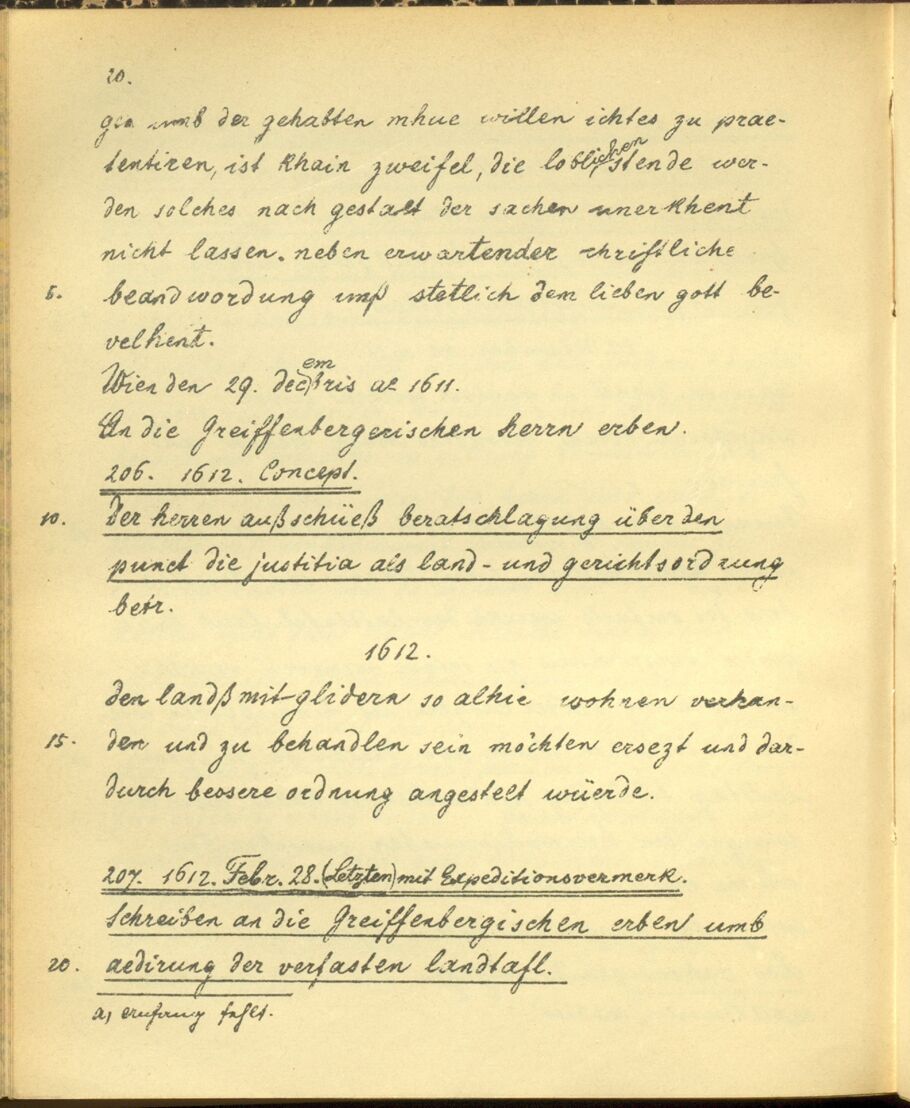 20.
gen umb der gehabten mhue willen ichtes zu prae-
tentiren, ist khain zweifel, die loblichen stende wer-
den solches nach gestalt der sachen unerkhent
nicht lassen. neben erwartender schriftliche
5. beandwordung unß stetlich dem lieben gott be-
velhent.
Wien den 29. decembris ao 1611.
An die Greiffenbergerischen herrn erben.
206. 1612. Concept.
10. Der herren außschüeß beratschlagung über den
punct die justitia als land- und gerichtsordnung
betr.
1612.
den landßmitglidern so alhie wohnen verhan-
15. den und zu behandlen sein möchten ersezt und dar-
durch bessere ordnung angestelt wüerde.
207. 1612. Febr. 28. (Letzten) mit Expeditionsvermerk.
Schreiben an die Greiffenbergischen erben umb
20. aedirung der verfasten landtafl.
a, fehlt.